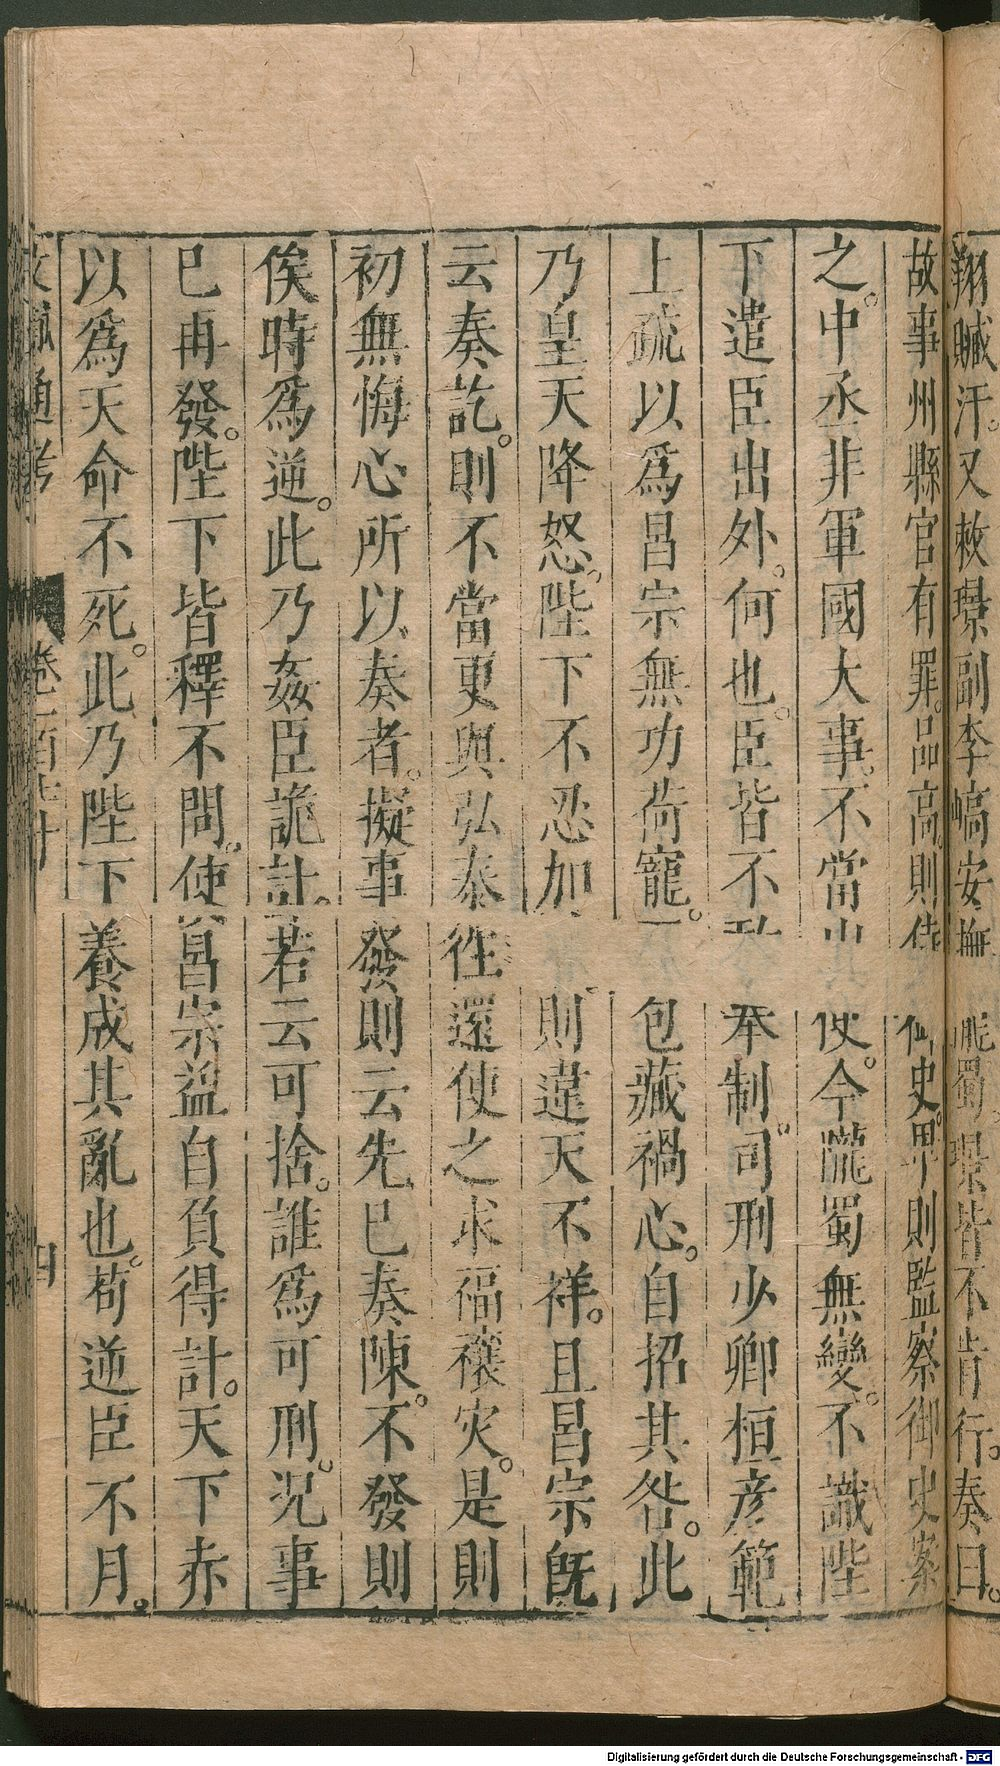 翔贓汗。又敕璟副李嶠安撫隴蜀璟皆不肯行。奏曰。
故事州縣官有罪。品高。則侍御史。卑則監察御史案
之。中丞非軍國大事。不當出使。今隴蜀無變。不識陛
下遣臣出外。何也。臣皆不敢奉制。司刑少卿桓彥範
上疏以爲昌宗無功荷寵。包藏禍心。自招其咎。此
乃皇天降怒。陛下不忍加則違天不祥。且昌宗旣
云奏訖。則不當更與弘泰往還使之求福禳灾。是則
初無悔心所以奏者。擬事發則云先已奏陳。不發則
俟時爲逆。此乃姦臣詭計。若云可捨。誰爲可刑。况事
已再發。陛下皆釋不問。使昌宗益自負得計。天下亦
以爲天命不死。此乃陛下養成其亂也。苟逆臣不
通考 卷一百 四
Digitalisierung gefördert durch die Deutsche Forschungsgemeinschaft - DFG